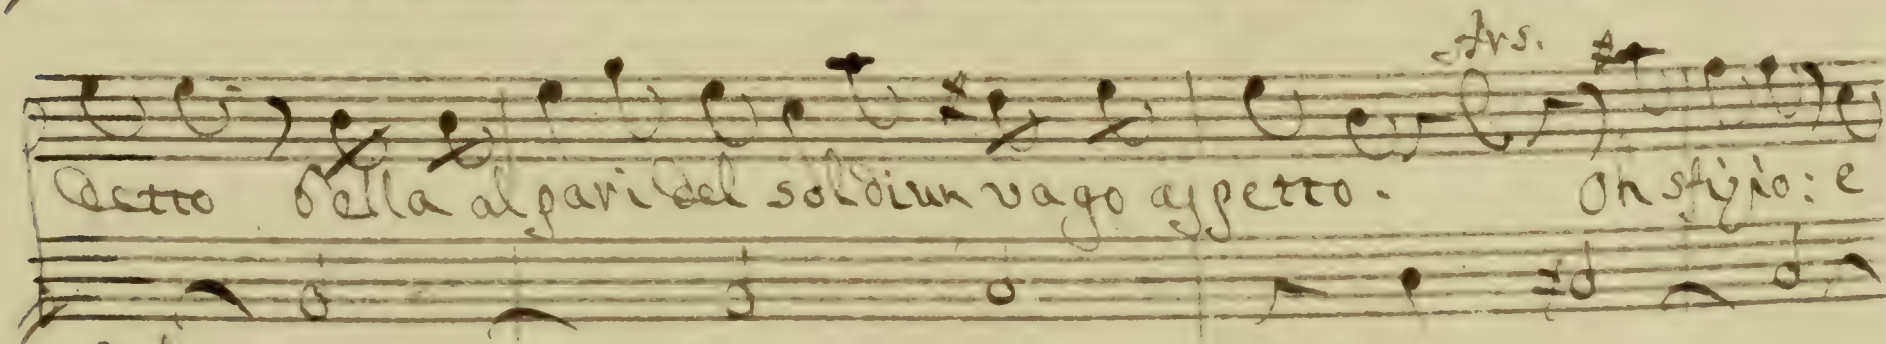 Ars.
detto bella al pari del sol di un vago aspetto. Oh : e